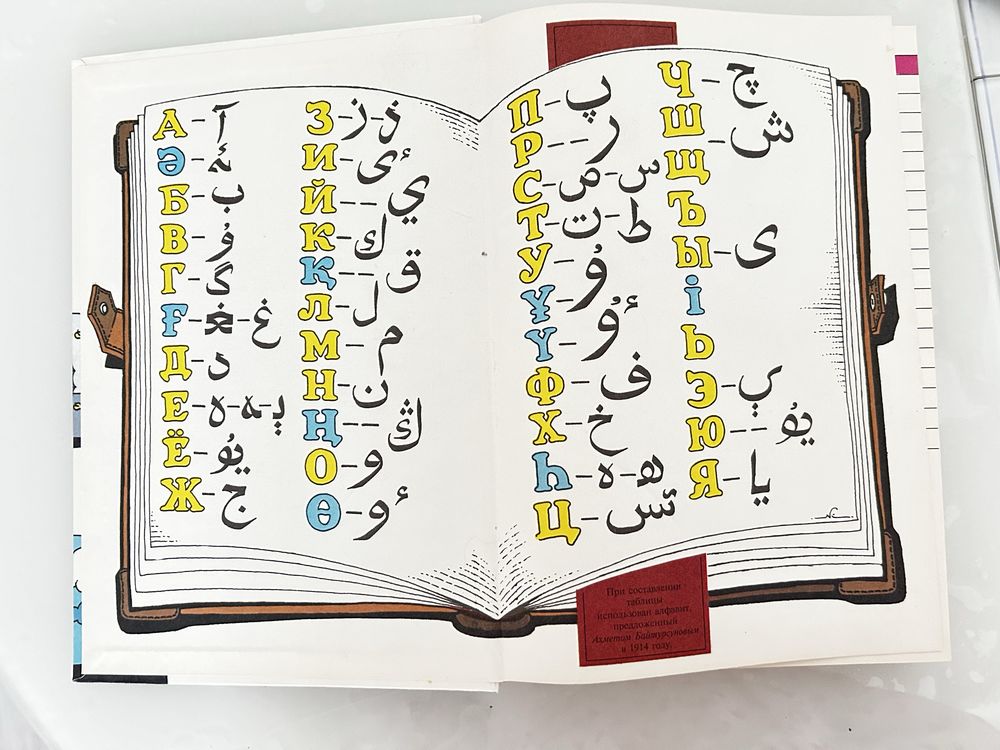 А - آ
Ә - ئە
Б - ب
В - ۋ
Г - گ
Ғ - غ
Д - د
Е - ە - ە - ې
Ё - يو
Ж - ج
З - ز - ذ
И - ئى
Й - - ي
К - ك
Қ - - ق
Л - ل
М - م
Н - ن
Ң - - ڭ
О - و
Ө - ٴو
П - پ
Р - - ر
С - ص - س
Т - ت - ط
У - ۇ
Ұ - ۇ
Ү - ٴۇ
Ф - ف
Х - خ
Һ - ە - ھ
Ц - تس
Ч - چ
Ш - ش
Щ
Ъ
Ы - ى
І
Ь
Э - ې
Ю - - يۇ
Я - يا
При составлении
таблицы
использован алфавит,
предложенный
Ахметом Байтурсуновым
в 1914 году.